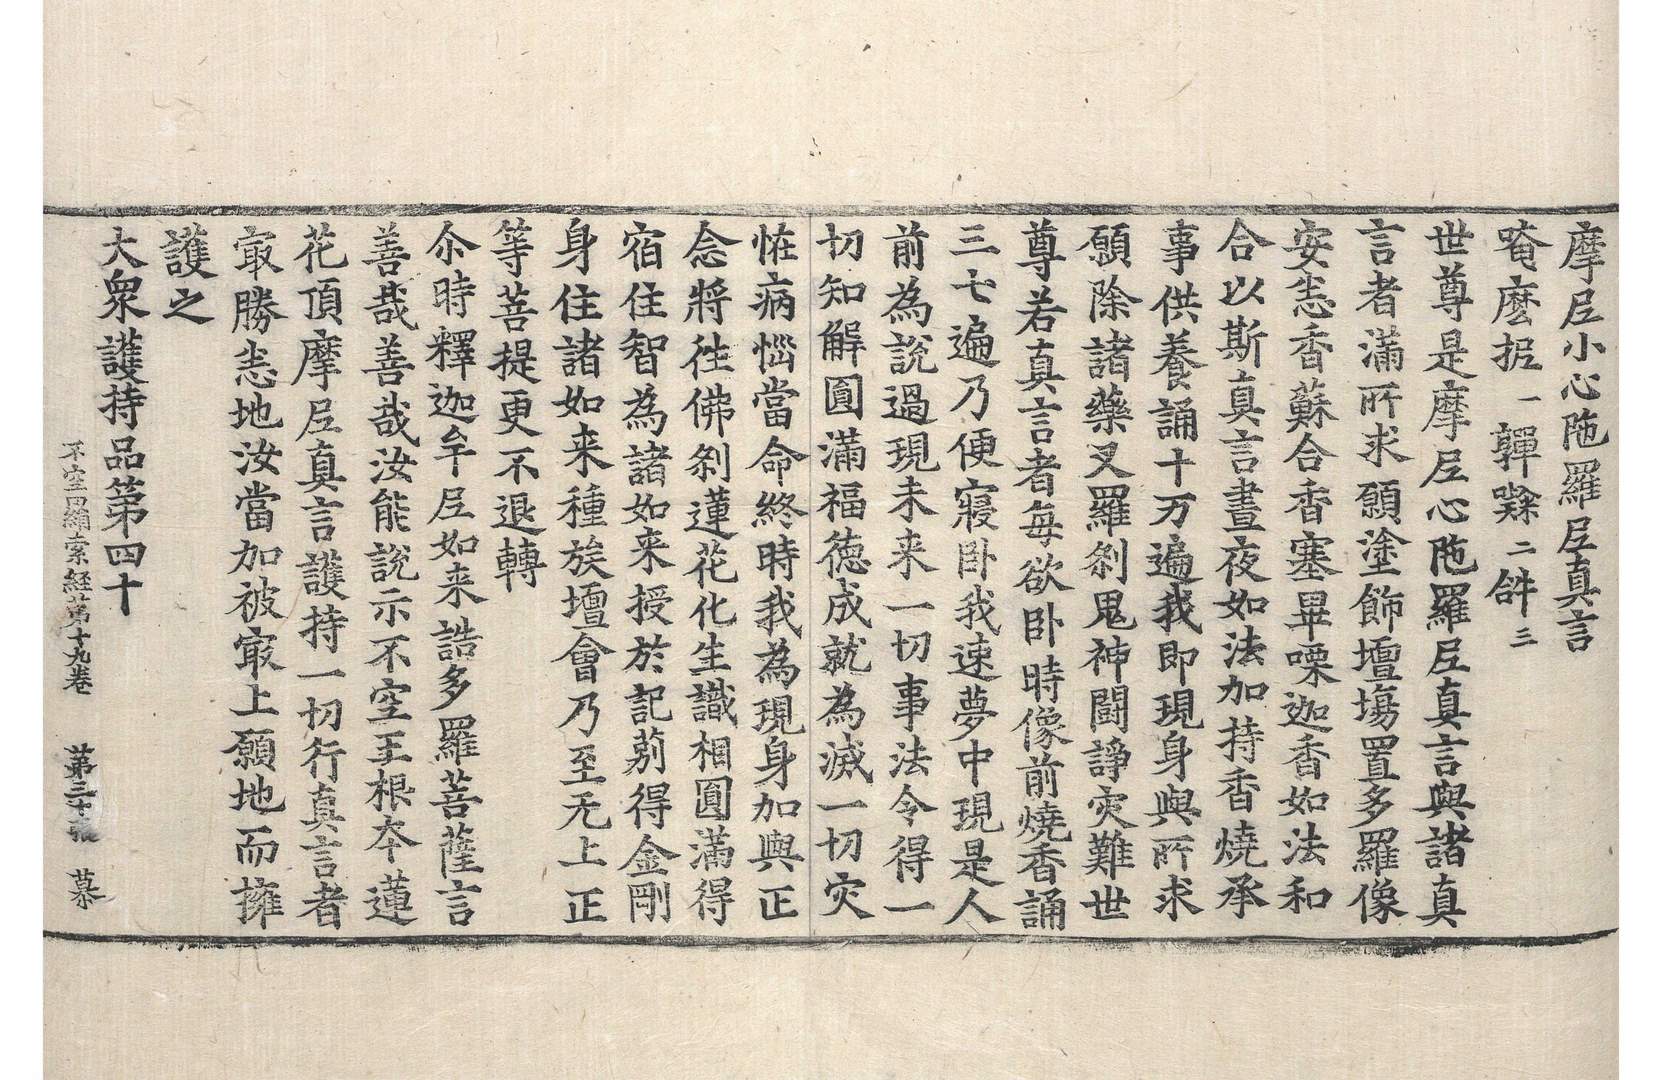 摩尼小心陁羅尼真言
唵麼抳一韗㗚二𤙖三
世尊是摩尼心陁羅尼真言與諸真
言者滿所求願塗飾壇塲置多羅像
安悉香蘇合香塞畢嘌迦香如法和
合以斯真言晝夜如法加持香燒承
事供養誦十万遍我即現身與所求
願除諸藥叉羅剎鬼神鬪諍灾難世
尊若真言者每欲卧時像前燒香誦
三七遍乃便寢卧我速夢中現是人
前為說過現未来一切事法令得一
切知解圓滿福德成就為滅一切灾
恠病惱當命終時我為現身加與正
念將徃佛剎蓮花化生識相圓滿得
宿住智為諸如来授於記莂得金剛
身住諸如来種族壇會乃至无上正
等菩提更不退轉
尒時釋迦牟尼如来誥多羅菩薩言
善哉善哉汝能說示不空王根本蓮
花頂摩尼真言護持一切行真言者
㝡勝悉地汝當加被㝡上願地而擁
護之
大衆護持品第四十
不空罥索経第十九卷 第三十張 慕